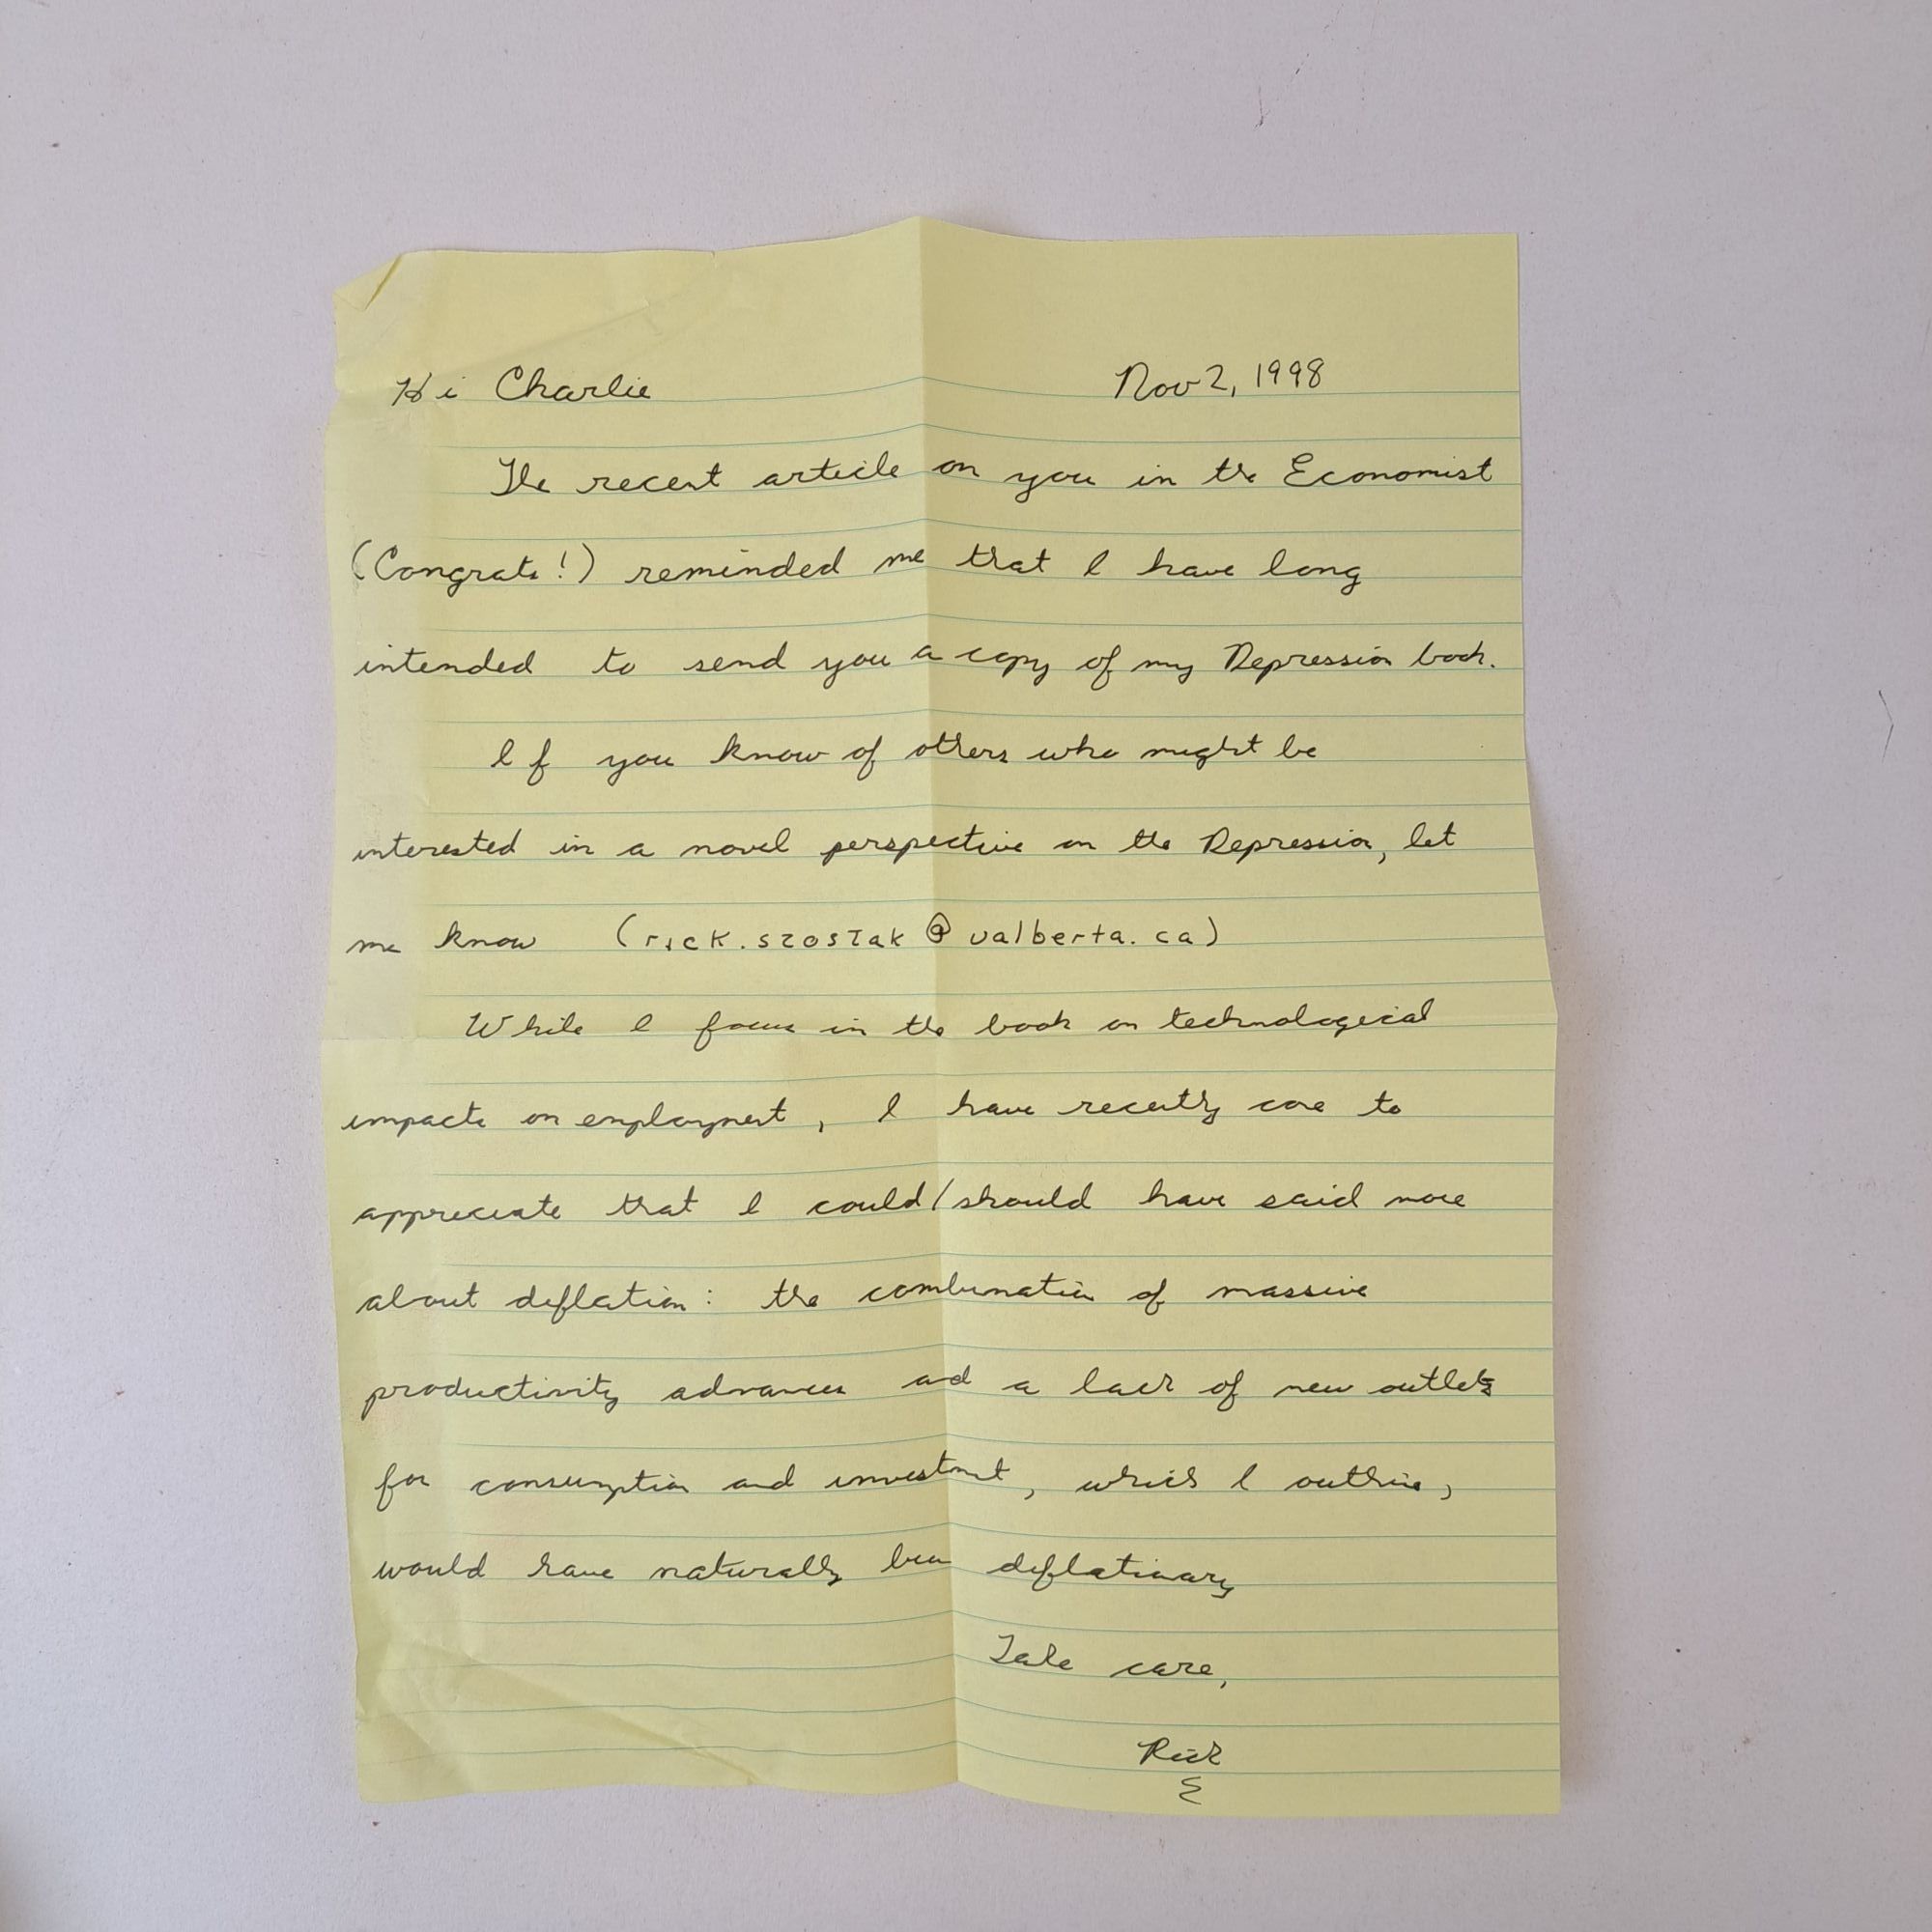 Hi Charlie Nov 2, 1998
The recent article on you in the Economist
(Congrats!) reminded me that I have long
intended to send you a copy of my Depression book.
If you know of others who might be
interested in a novel perspective on the Depression, let
me know (rick.szostak@ualberta.ca)
While I focus in the book on technological
impacts on employment, I have recently come to
appreciate that I could/should have said more
about deflation: the combination of massive
productivity advances and a lack of new outlets
for consumption and investment, which I outline,
would have naturally been deflationary
Take care,
Rick